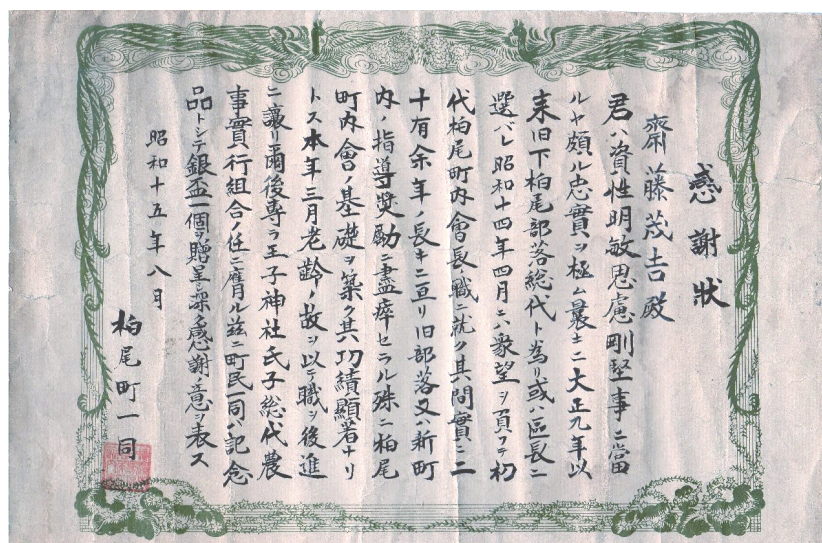 感謝狀
齋藤茂吉殿
君ハ資性明敏思慮剛堅事ニ當
ルヤ頗ル忠實ヲ極ム曩キニ大正九年以
来旧下柏尾部落総代ト為リ或ハ區長ニ
選バレ昭和十四年四月ニハ衆望ヲ負フテ初
代柏尾町内會長ノ職ニ就ク其間實ニ二
十有余年ノ長キニ亘リ旧部落又ハ新町
内ノ指導奬勵ニ盡瘁セラル殊ニ柏尾
町内會ノ基礎ヲ築ク其功績顯著ナリ
トス本年三月老齢ノ故ヲ以テ職ヲ後進
ニ讓リ爾後専ラ王子神社氏子総代農
事實行組合ノ任ニ膺ル茲ニ町民一同ハ記念
品トシテ銀盃一個ヲ贈呈シ深ク感謝ノ意ヲ表ス
昭和十五年八月
柏尾町一同